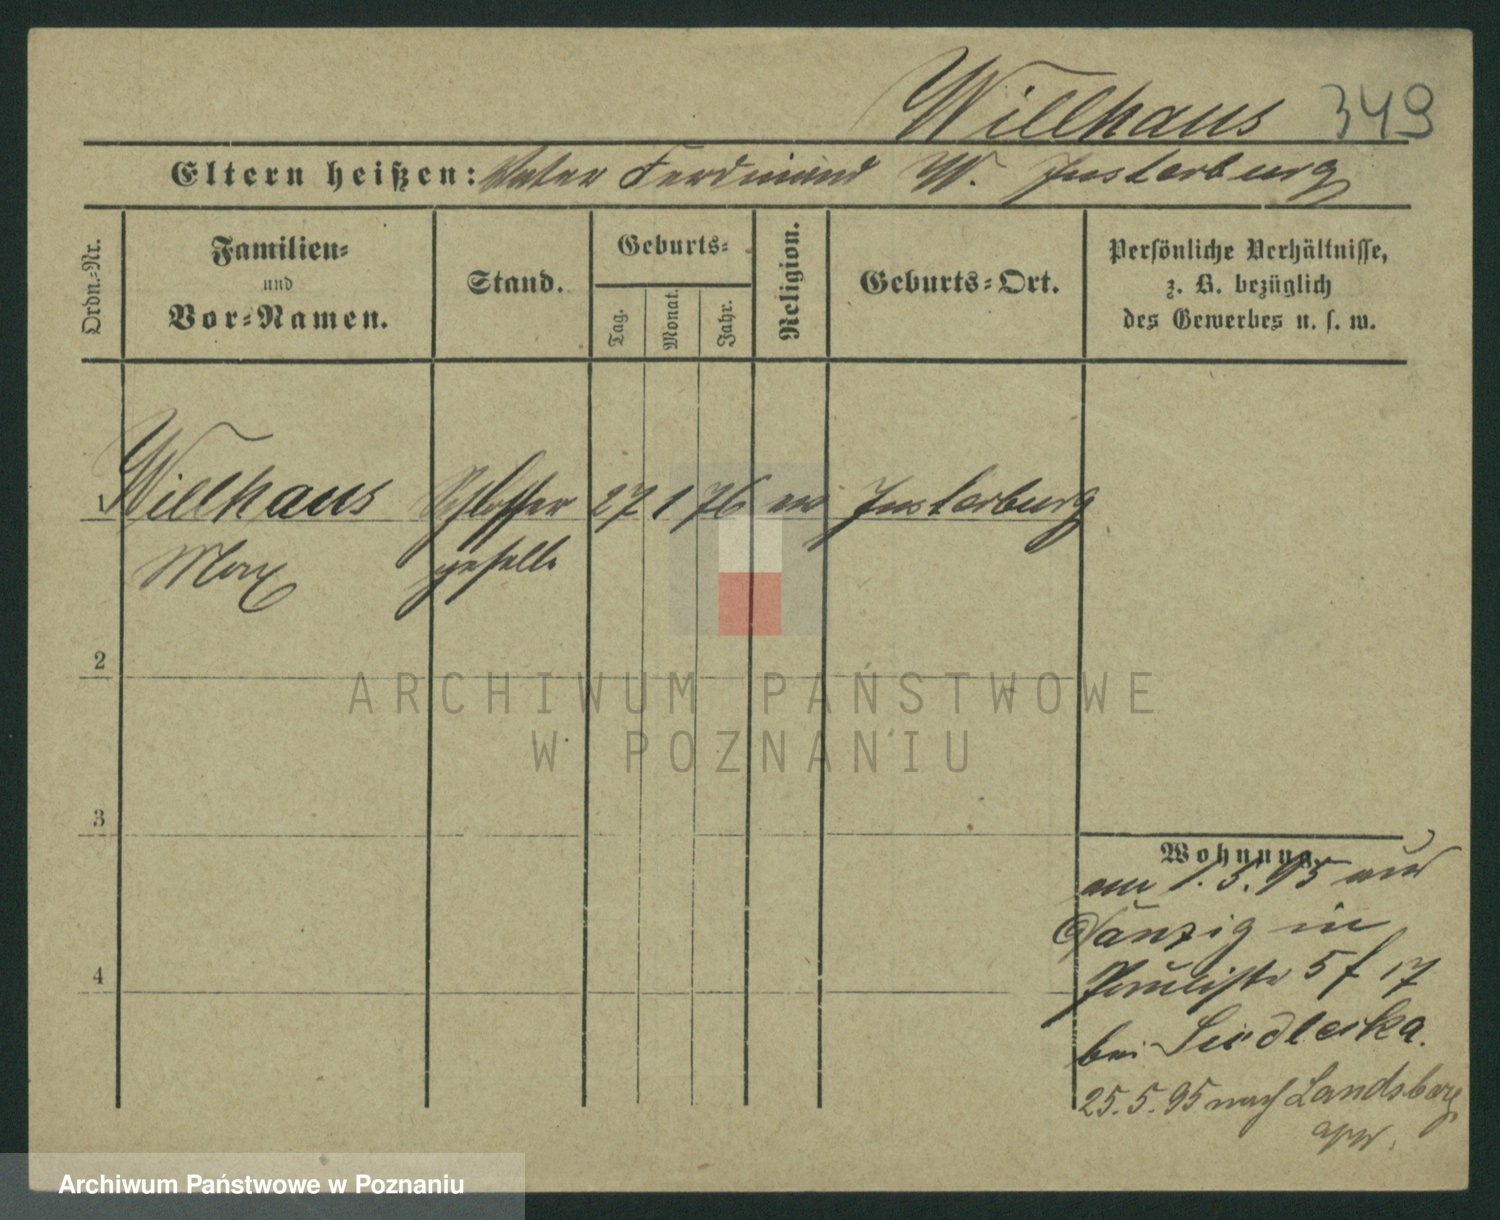 Willhaus 349
Eltern heißen: Vater Ferdinand W. Insterburg
Ordn.-Nr.
Familien-
und
Vor-Namen.
Stand.
Geburts-
Tag.
Monat.
Jahr.
Religion.
Geburts-Ort.
Persönliche Verhältnisse,
z. B. bezüglich
des Gewerbes u. s. w.
Willhaus Schlosser 27 1 76 ev Insterburg
Max geselle
2
3
4
Wohnung.
am 1. 5. 95 aus
Danzig in
5 f 17
bei Siedlerka.
25. 5. 95 nach Landsberg
a/W.
ARCHIWUM PAŃSTWOWE
W POZNANIU
Archiwum Państwowe w Poznaniu